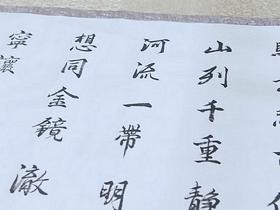 山列千重靜
河流一帶明
想同金鏡澈
寧讓